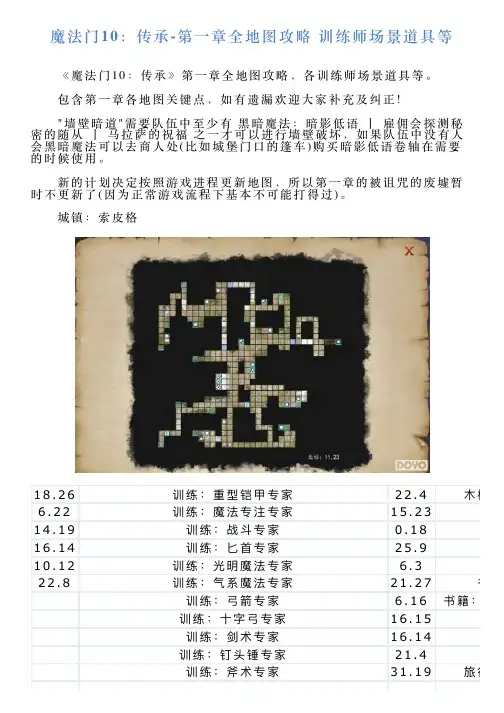 魔法门10：传承-第一章全地图攻略 训练师场景道具等
《魔法门10：传承》第一章全地图攻略，各训练师场景道具等。
包含第一章各地图关键点，如有遗漏欢迎大家补充及纠正！
"墙壁暗道"需要队伍中至少有 黑暗魔法：暗影低语 | 雇佣会探测秘
密的随从 | 马拉萨的祝福 之一才可以进行墙壁破坏，如果队伍中没有人
会黑暗魔法可以去商人处(比如城堡门口的篷车)购买暗影低语卷轴在需要
的时候使用。
新的计划决定按照游戏进程更新地图，所以第一章的被诅咒的废墟暂
时不更新了(因为正常游戏流程下基本不可能打得过)。
城镇：索皮格
X
坐标：11,23
DOYO
18.26 训练：重型铠甲专家 22.4
6.22 训练：魔法专注专家 15.23
14.19 训练：战斗专家 0.18
16.14 训练：匕首专家 25.9
10.12 训练：光明魔法专家 6.3
22.8 训练：气系魔法专家 21.27
训练：弓箭专家 6.16 书籍：
训练：十字弓专家 16.15
训练：剑术专家 16.14
训练：钉头锤专家 21.4
训练：斧术专家 31.19